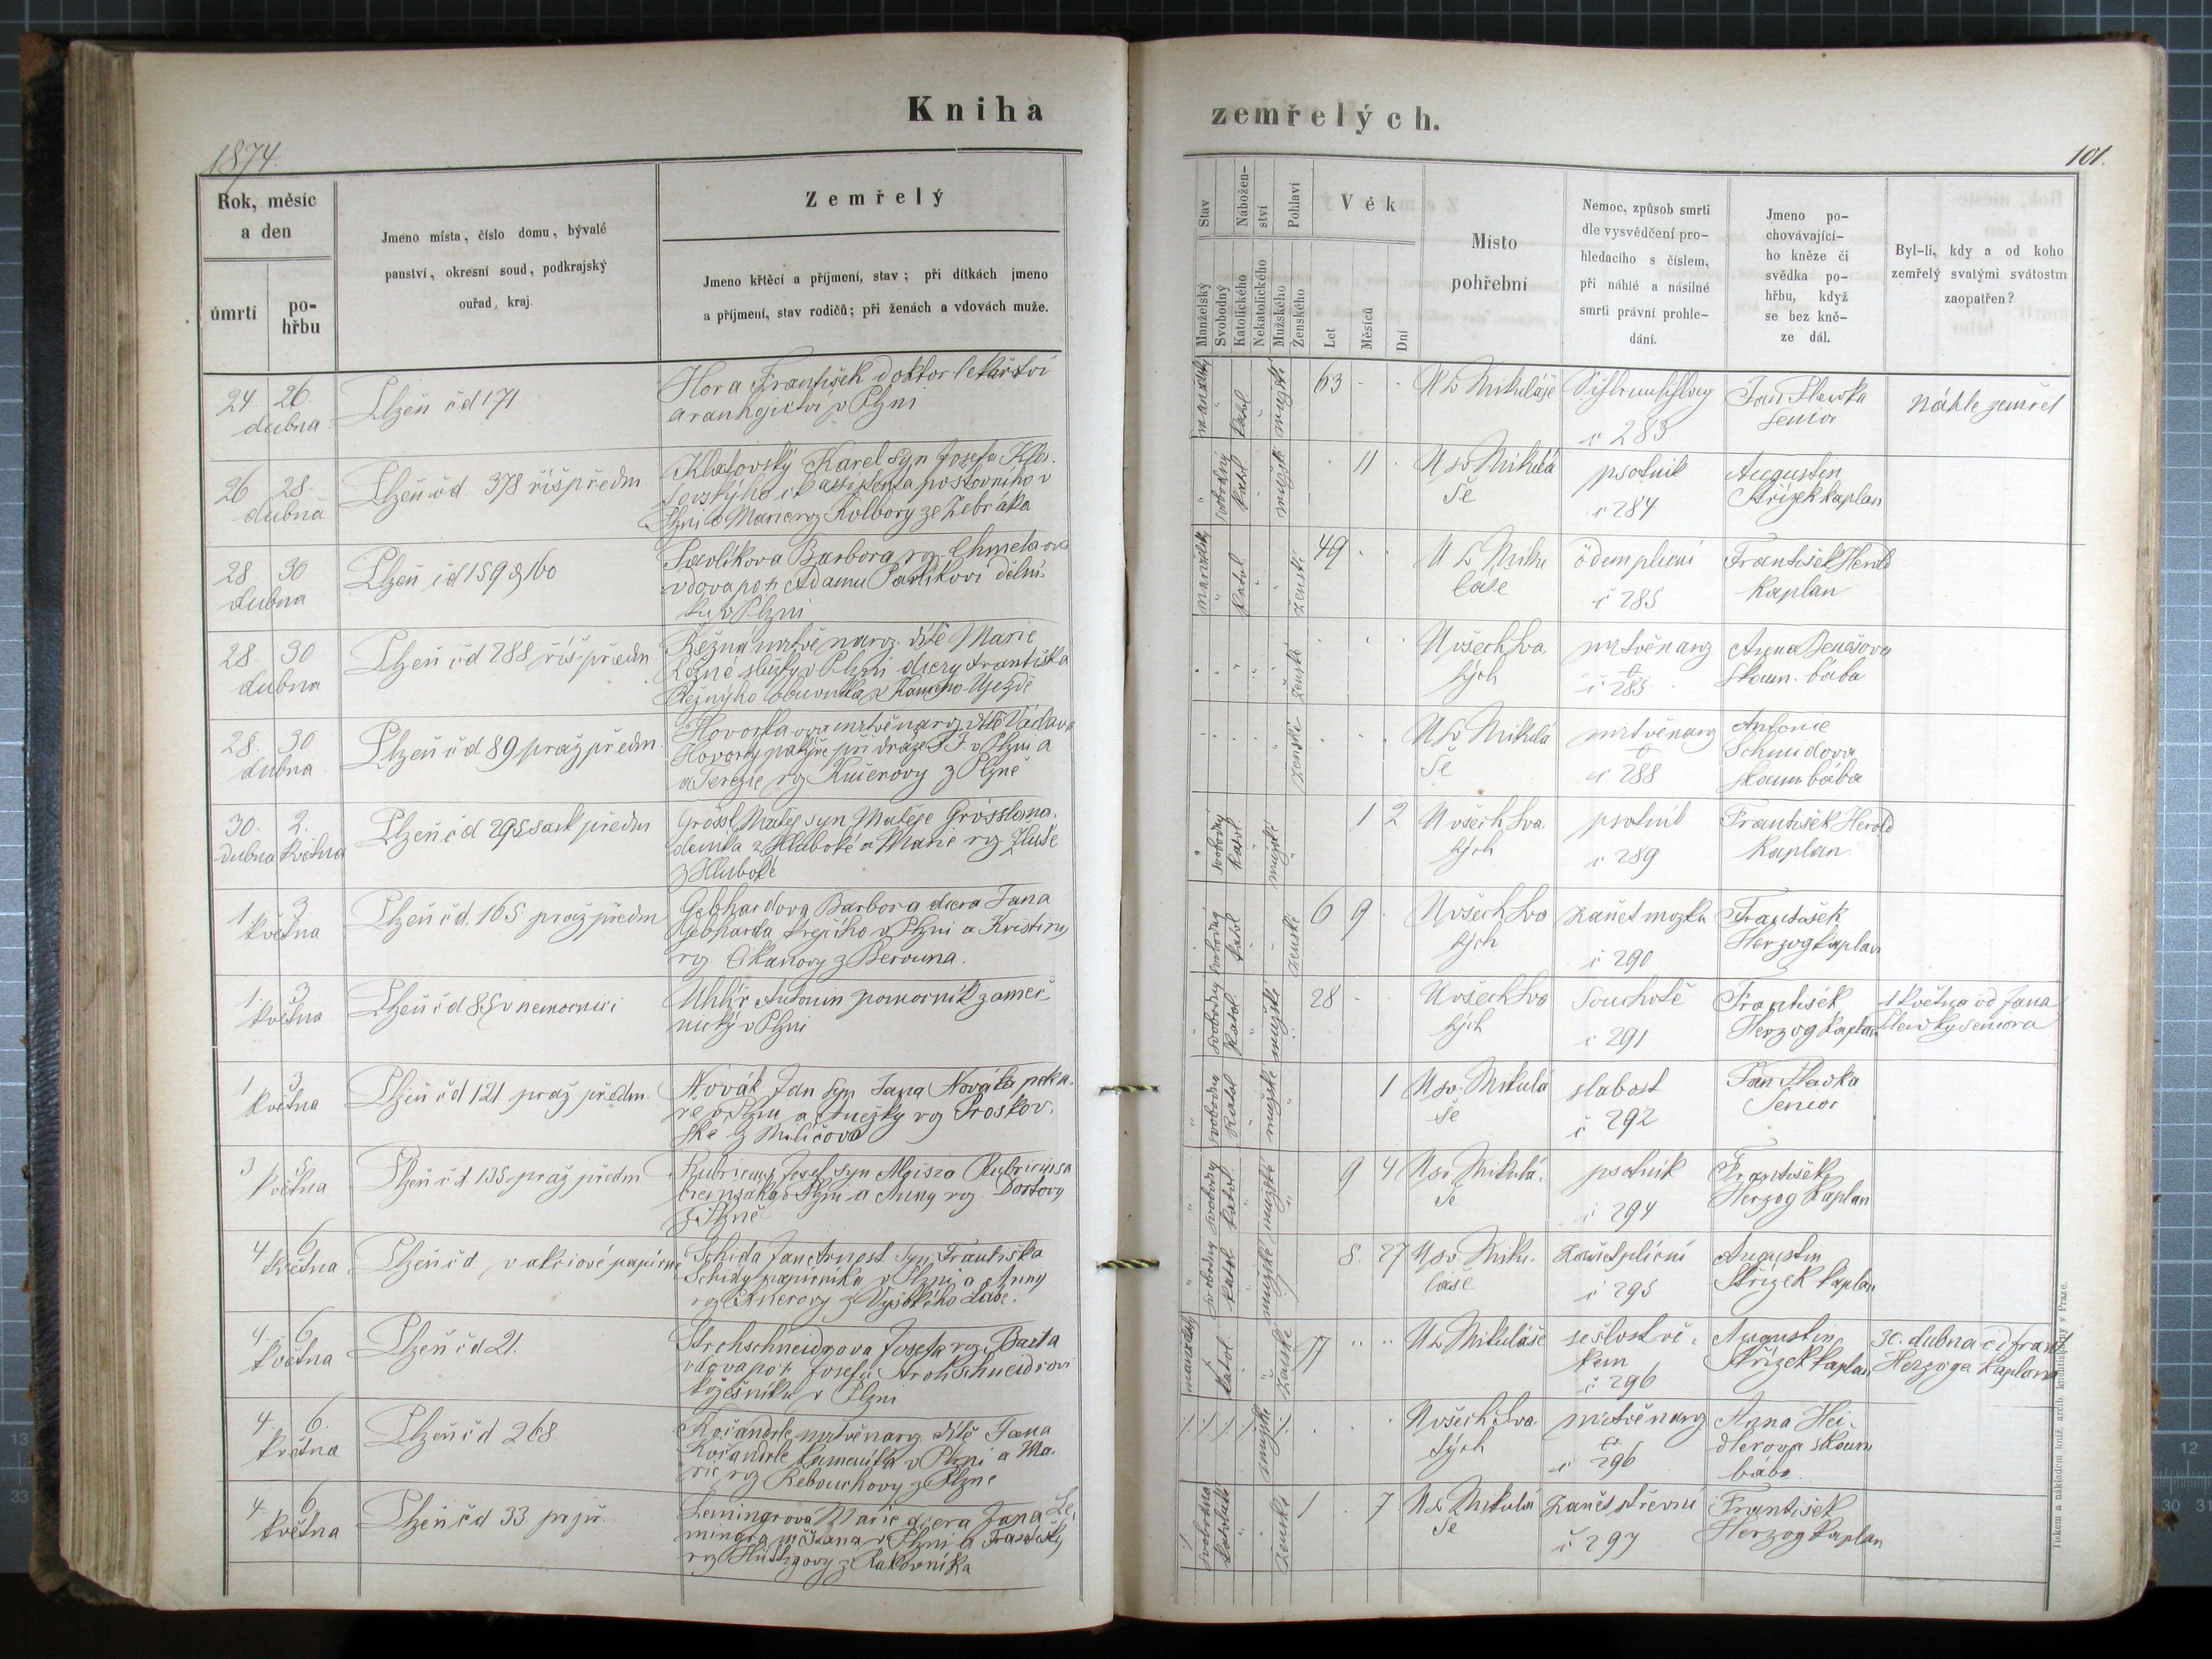 Kniha zemřelých.
1874.
101.
Rok, měsíc
a den
úmrtí
po-
hřbu
Jmeno místa, číslo domu, bývalé
panství, okresní soud, podkrajský
ouřad, kraj.
Zemřelý
Jmeno křtěcí a příjmení, stav; při dítkách jmeno
a příjmení, stav rodičů; při ženách a vdovách muže.
Stav
Manželský
Svobodný
Nábožen-
ství
Katolického
Nekatolického
Pohlaví
Mužského
Ženského
Věk
Let
Měsíců
Dní
Místo
pohřební
Nemoc, způsob smrti
dle vysvědčení pro-
hledacího s číslem,
při náhlé a násilné
smrti právní prohle-
dání.
Jmeno po-
chovávající-
ho kněze či
svědka po-
hřbu, když
se bez kně-
ze dál.
Byl-li, kdy a od koho
zemřelý svatými svátostmi
zaopatřen?
24. 26.
dubna
Plzeň čd 171
Hora František doktor lékařství
a ranhojictví v Plzni
manželský
katol
mužské
63
U sv Mikuláše
č 283
Jan Slavka
Senior
Náhle zemřel
26 28.
dubna
Plzeň čd 378 říš předm
Klatovský Karel syn Josefa Kla-
tovského assistenta poštovního v
Plzni a Marie roz Kolbory ze Žebráka
svobodný
katol
mužské
11
U sv Mikulá
še
psotník
č 284
Augustin
Střízek kaplan
28 30
dubna
Plzeň čd 159 & 160
Pavlíkova Barbora roz. Chmelova
vdova po Adamu Pavlíkovi dělní-
ku v Plzni
manželský
katol
ženské
49
U S Miku
láše
ödem plicní
č 285
František Herold
Kaplan
28. 30
dubna
Plzeň čd 288 říš. předm.
Režná mrtvě naroz. dítě Marie
Režné služky v Plzni dcery Františka
Režnýho obuvníka z Kameno Ujezdě
ženské
U všech Sva
tých
mrtvěnaroz
č 285
Anna Benešova
skoum. bába
28. 30
dubna
Plzeň čd 89 praž předm.
Hovorka mrtvě naroz dítě Václava
Hovorky při dráze F. J. v Plzni a
a Terezie roz Kučerovy z Plzně
ženské
U Sv Mikulá
še
mrtvěnaroz
č 288
Antonie
Schmidova
skoum bába
30. 2.
dubna května
Plzeň čd 295 sask předm
Grössl Matěj syn Matěje Grössla na-
deníka z Hluboké a Marie roz
z Hluboké
svobodný
katol.
mužské
1 2
U všech Sva.
tých
psotník
č 289
František Herold
Kaplan
1. 3
května
Plzeň čd. 165 praž předm
Gebhardova Barbora dcera Jana
Gebharda krejčího v Plzni a Kristiny
roz Cikanovy z Berouna.
svobodný
katol
ženské
6 9
U všech Sva
tých
zánět mozku
č 290
František
Herzog kaplan
1. 3
května
Plzeň čd 85 v nemocnici
Uhlíř Antonin pomocník zámeč
nický v Plzni
svobodný
katol
mužské
28
U všech Sva
tých
Souchotě
č 291
František
Herzog kaplan
1 května od Jana
Slavky seniora
1 3
května
Plzeň čd 121 praž předm.
Novák Jan syn Jana Nováka peka-
ře v Plzni a Anežky roz Proskov-
ské z Miličova
svobodný
katol
mužské
1
U sv. Mikulá
še
slabost
č 292
Jan Slavka
Senior
3 5
května
Plzeň čd 135 praž předm
Rubricius Josef syn Aloisia Rubriciusa
v Plzni a Anny roz. Dortovy
z Plzně
svobodný
katol.
mužské
9 4
U sv. Mikulá.
še
psotník
č 294
František
Herzog Kaplan
4. 6.
května
Plzeň čd v akciové papírně
Schida Jan Arnost syn Františka
Schidy papírníka v Plzni a Anny
roz z Vysokého Labe.
svobodný
katol
mužské
8. 27
U sv. Miku.
láše
zánět plícní
č 295
Augustin
Střízek kaplan
4. 6.
května
Plzeň čd 21.
Strohschneidrova Josefa roz. Barta
vdova po Josefu Strohschneidrovi
kožešníku v Plzni
manželský
katol.
ženské
77
U S Mikuláše
sešlost vě-
kem
č 296
Augustin
Střízek kaplan
30. dubna od Frant
Herzoga kaplana
4. 6.
května
Plzeň čd 268.
Kočandrle mrtvěnaroz dítě Jana
Kočandrle kameníka v Plzni a Ma-
rie roz Rebouchovy z Plzně
mužské
U všech Sva.
tých
mrtvěnaroz
č 296
Anna Hei-
dlerova skoum
bába.
4 6.
května
Plzeň čd 33 pr. př.
Lemingrova Marie dcera Jana Le-
mingra měšťana v Plzni a Františky
roz Hüttigovy z Rakovníka
svobodna
katolické
ženské
1 7
U S Mikulá
še
zánět střevní
č 297
František
Herzog kaplan